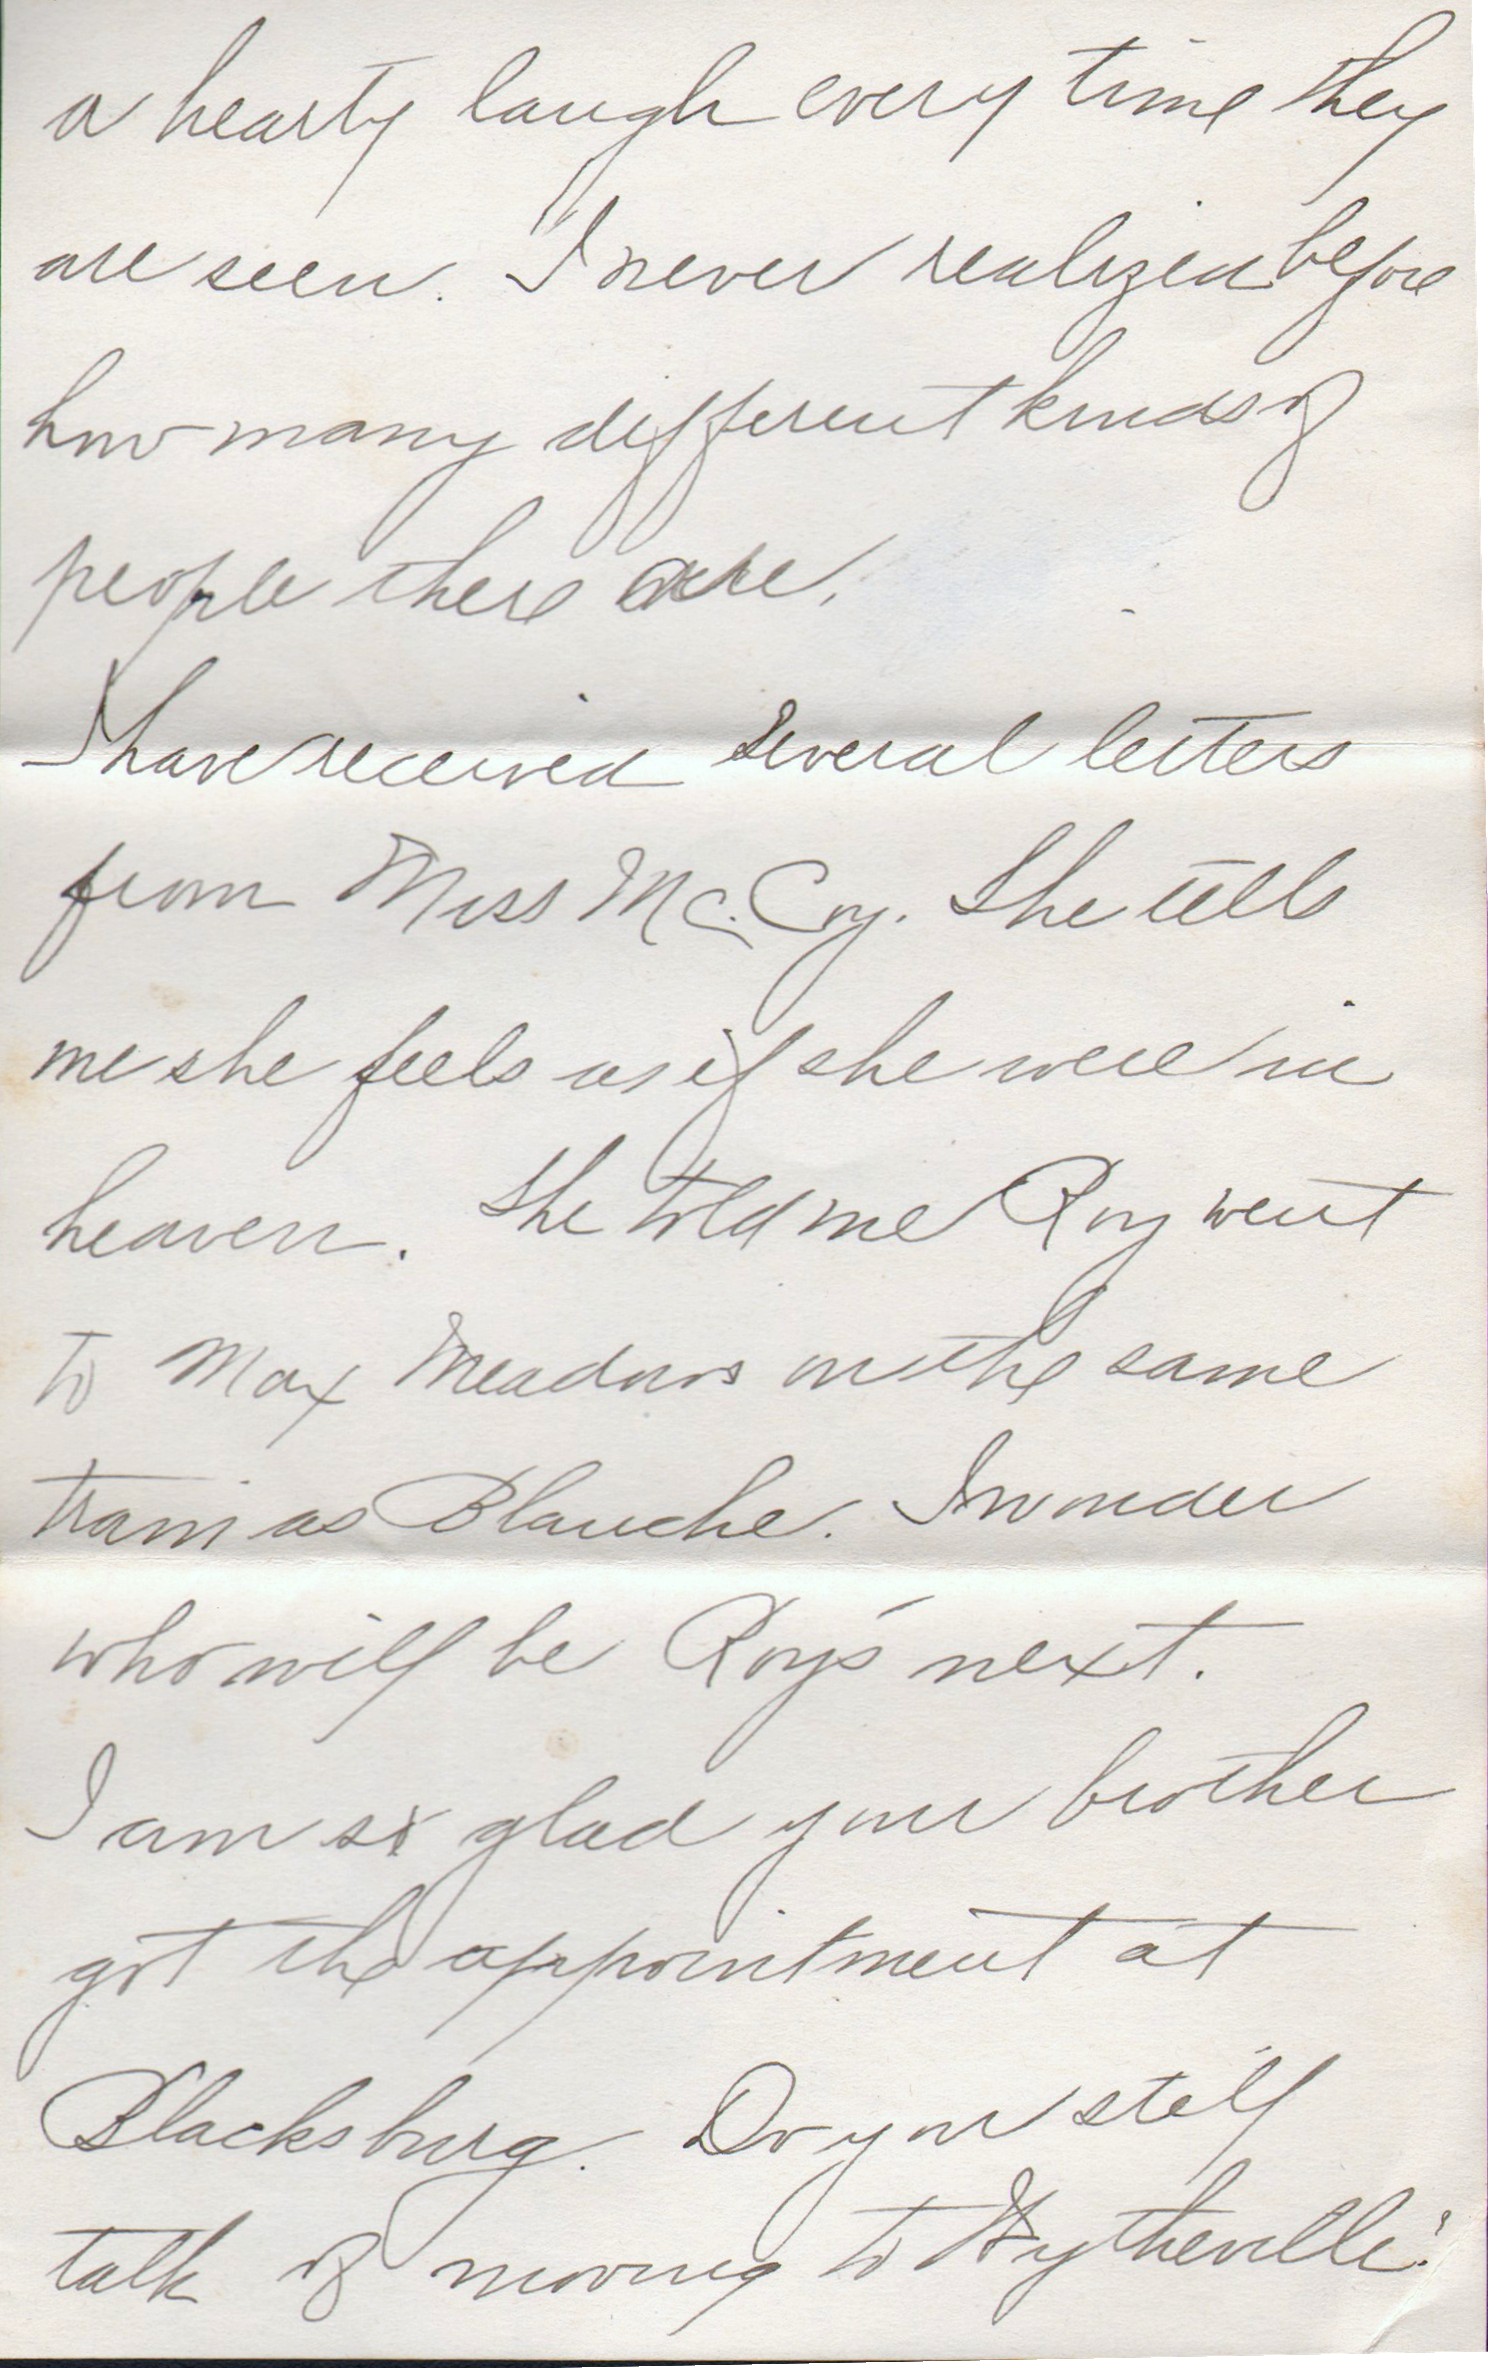 a hearty laugh every time they
are seen. I never realized before
how many different kinds of
people there are.
I have received several letters
from Miss Mc.Coy. She tells
me she feels as if she were in
heaven. She told me Roy went
to Max Meadows on the same
train as Blanche. I wonder
who will be Roy's next.
I am so glad your brother
got the appointment at
Blacksburg. Do you still
talk of moving to Wytheville?